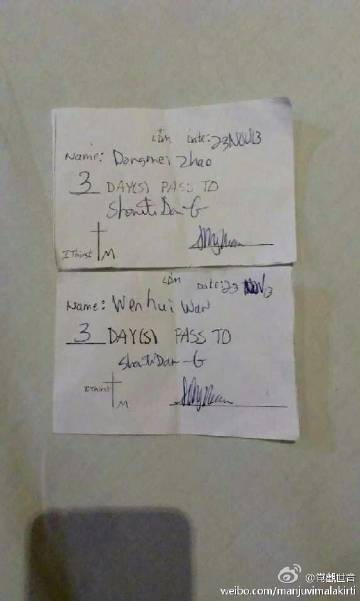 LDM Date: 23NOV13
Name: Dongmei Zhao
3 DAY(S) PASS TO
Shanti Dan-G
I Thirst M
LDM Date: 23 NOV13
Name: Wenhui Wan
3 DAY(S) PASS TO
Shanti Dan-G
I Thirst M
@常觀世音
weibo.com/manjuvimalakirti